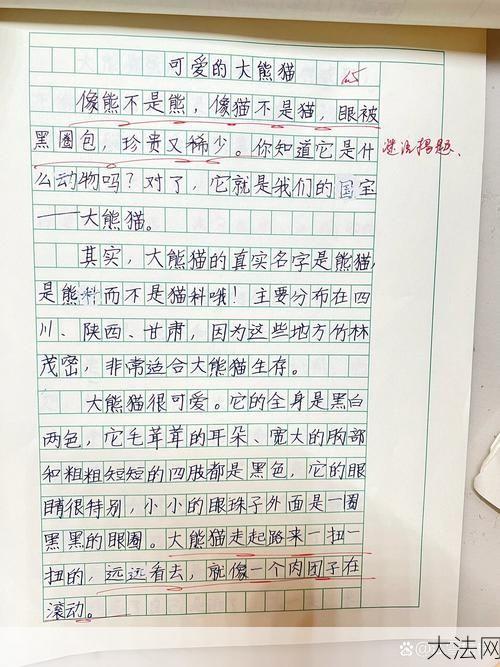 可爱的大熊猫
像熊不是熊，像猫不是猫，眼被
黑圈包，珍贵又稀少。你知道它是什
么动物吗？对了，它就是我们的国宝
——大熊猫。
其实，大熊猫的真实名字是熊猫，
是熊科而不是猫科哦！主要分布在四
川、陕西、甘肃，因为这些地方竹林
茂密，非常适合大熊猫生存。
大熊猫很可爱。它的全身是黑白
两色，它毛茸茸的耳朵、宽大的胸部
和粗粗短短的四肢都是黑色，它的眼
睛很特别，小小的眼珠子外面是一圈
黑黑的眼圈。大熊猫走起路来一扭一
扭的，远远看去，就像一个肉团子在
滚动。
谜语揭题、
大法网